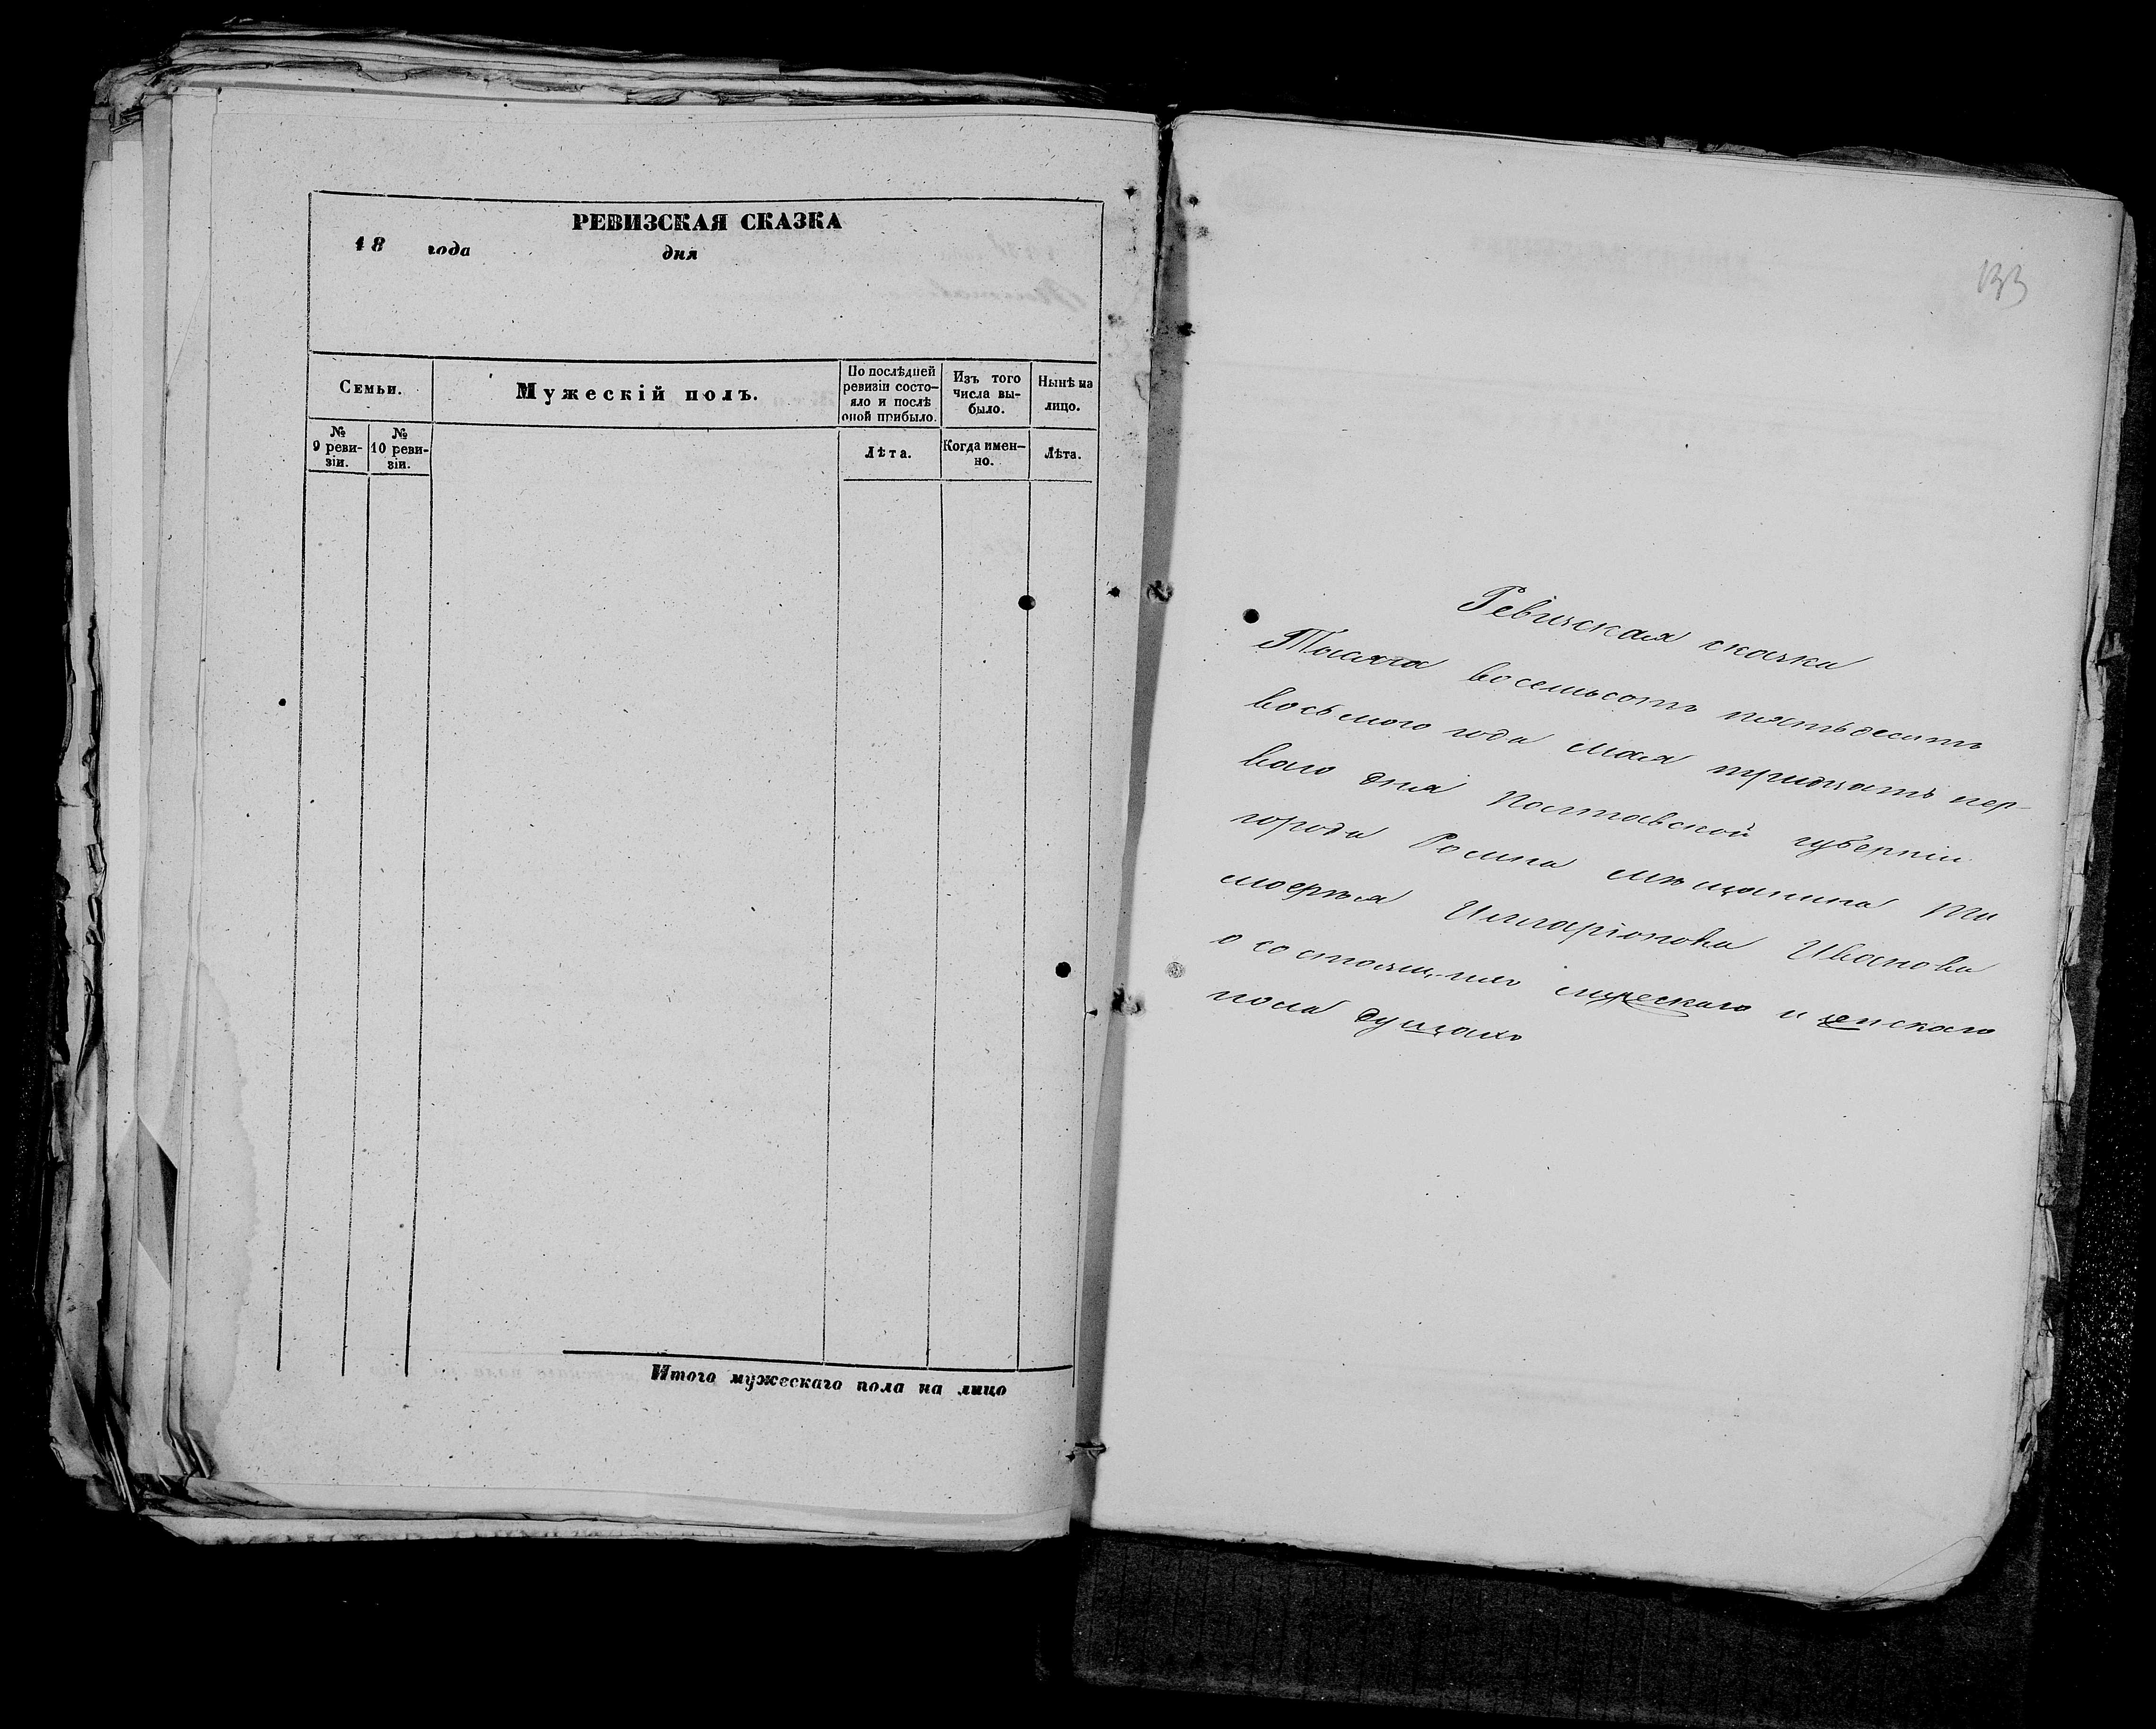 РЕВИЗСКАЯ СКАЗКА
18 года дня
Семьи.
Мужескій полъ.
По послѣдней
ревизіи состо-
яло и послѣ
оной прибыло.
Изъ того
числа вы-
было.
Нынѣ на
лицо.
№
9 реви-
зіи.
№
10 реви-
зіи.
Лѣта.
Когда имен-
но.
Лѣта.
Итого мужескаго пола на лицо
133
Ревизская сказка
Тысяча восемьсотъ пятьдесятъ
восьмого года мая тридцать пер-
ваго дня Полтавской губерніи
города Ромна мѣщанина Ти
мофѣя Иларіонова Иванова
о состоящихъ мужескаго и женскаго
пола душахъ